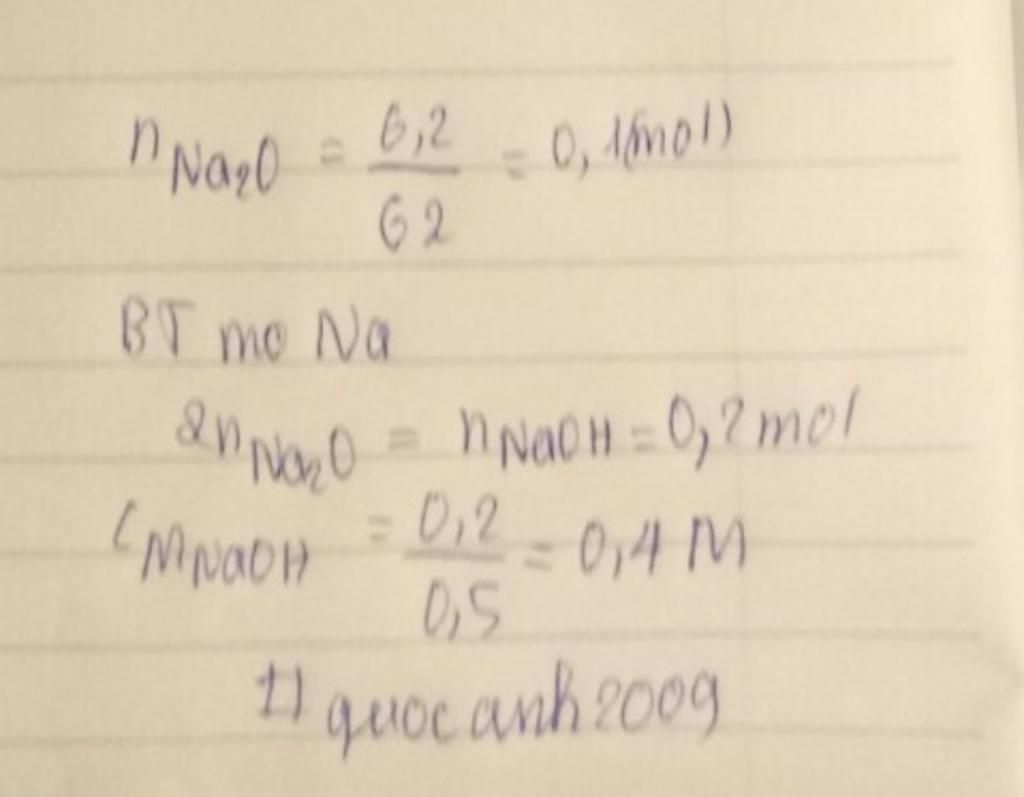 n Na₂O = 6,2/62 = 0,1(mol)
BT mo Na
2n Na₂O = n NaOH = 0,2 mol
C M NaOH = 0,2/0,5 = 0,4 M
quocanh2009